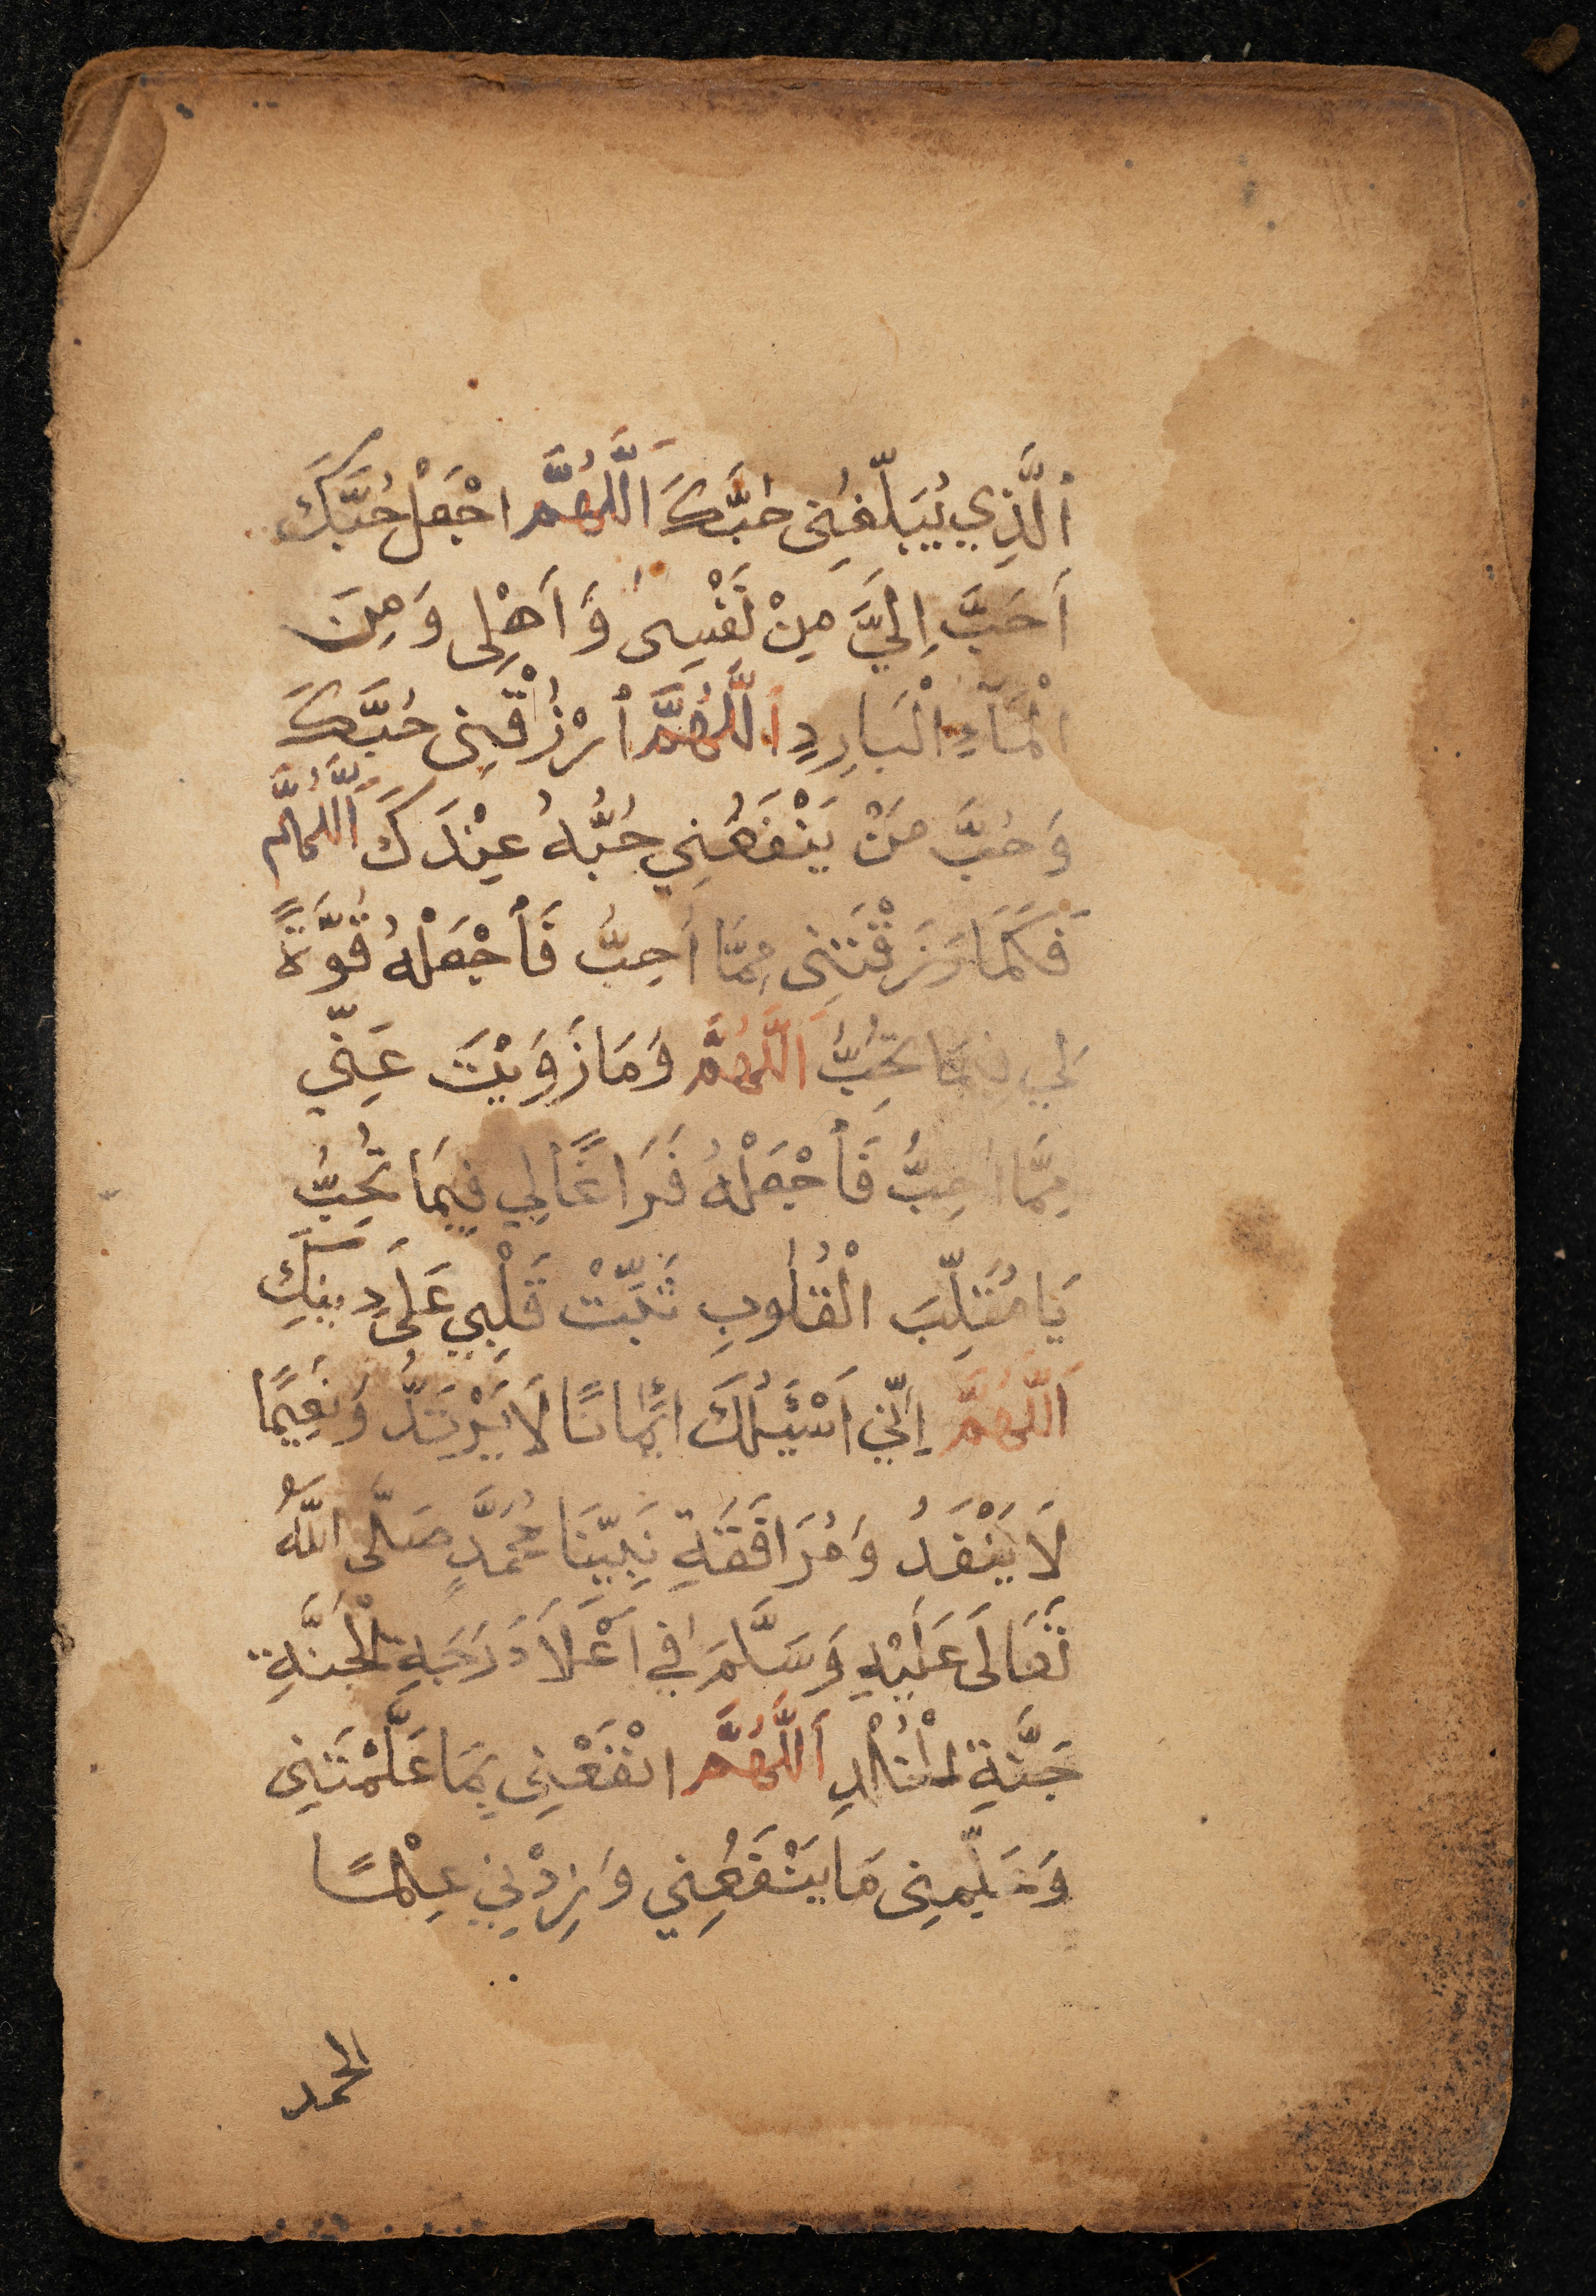 اَلَّذِي يُبَلِّغُنِى حُبَّكَ اَللَّهُمَّ اجْعَلْ حُبَّكَ
اَحَبَّ اِلَيَّ مِنْ نَفْسِى وَاَهْلِى وَمِنَ
الْمَآءِ الْبَارِدِ اَللَّهُمَّ اُرْزُقْنِى حُبَّكَ
وَحُبَّ مَنْ يَنْفَعُنِي حُبُّهُ عِنْدَكَ اَللَّهُمَّ
فَكَمَا رَزَقْتَنِى مِمَّا اُحِبُّ فَاْجْعَلْهُ قُوَّةً
لِي فِيمَا تُحِبُّ اَللَّهُمَّ وَمَا زَوَيْتَ عَنِّي
مِمَّا اُحِبُّ فَاْجْعَلْهُ فَرَاغًا لِي فِيمَا تُحِبُّ
يَا مُقَلِّبَ الْقُلُوبِ ثَبِّتْ قَلْبِي عَلَى دِينِكَ
اَللَّهُمَّ اِنِّي اَسْئَلُكَ اِيْمَانًا لَا يَرْتَدُّ وَنَعِيمًا
لَا يَنْفَدُ وَمُرَافَقَةِ نَبِيِّنَا مُحَمَّدٍ صَلَّى اللَّهُ
تَعَالَى عَلَيْهِ وَسَلَّمَ فِي اَعْلَا دَرَجَةِ الْجَنَّةِ
جَنَّةِ الْخُلْدِ اَللَّهُمَّ انْفَعْنِى بِمَا عَلَّمْتَنِى
وَعَلِّمْنِى مَا يَنْفَعُنِي وَزِدْنِي عِلْمًا
الحمد